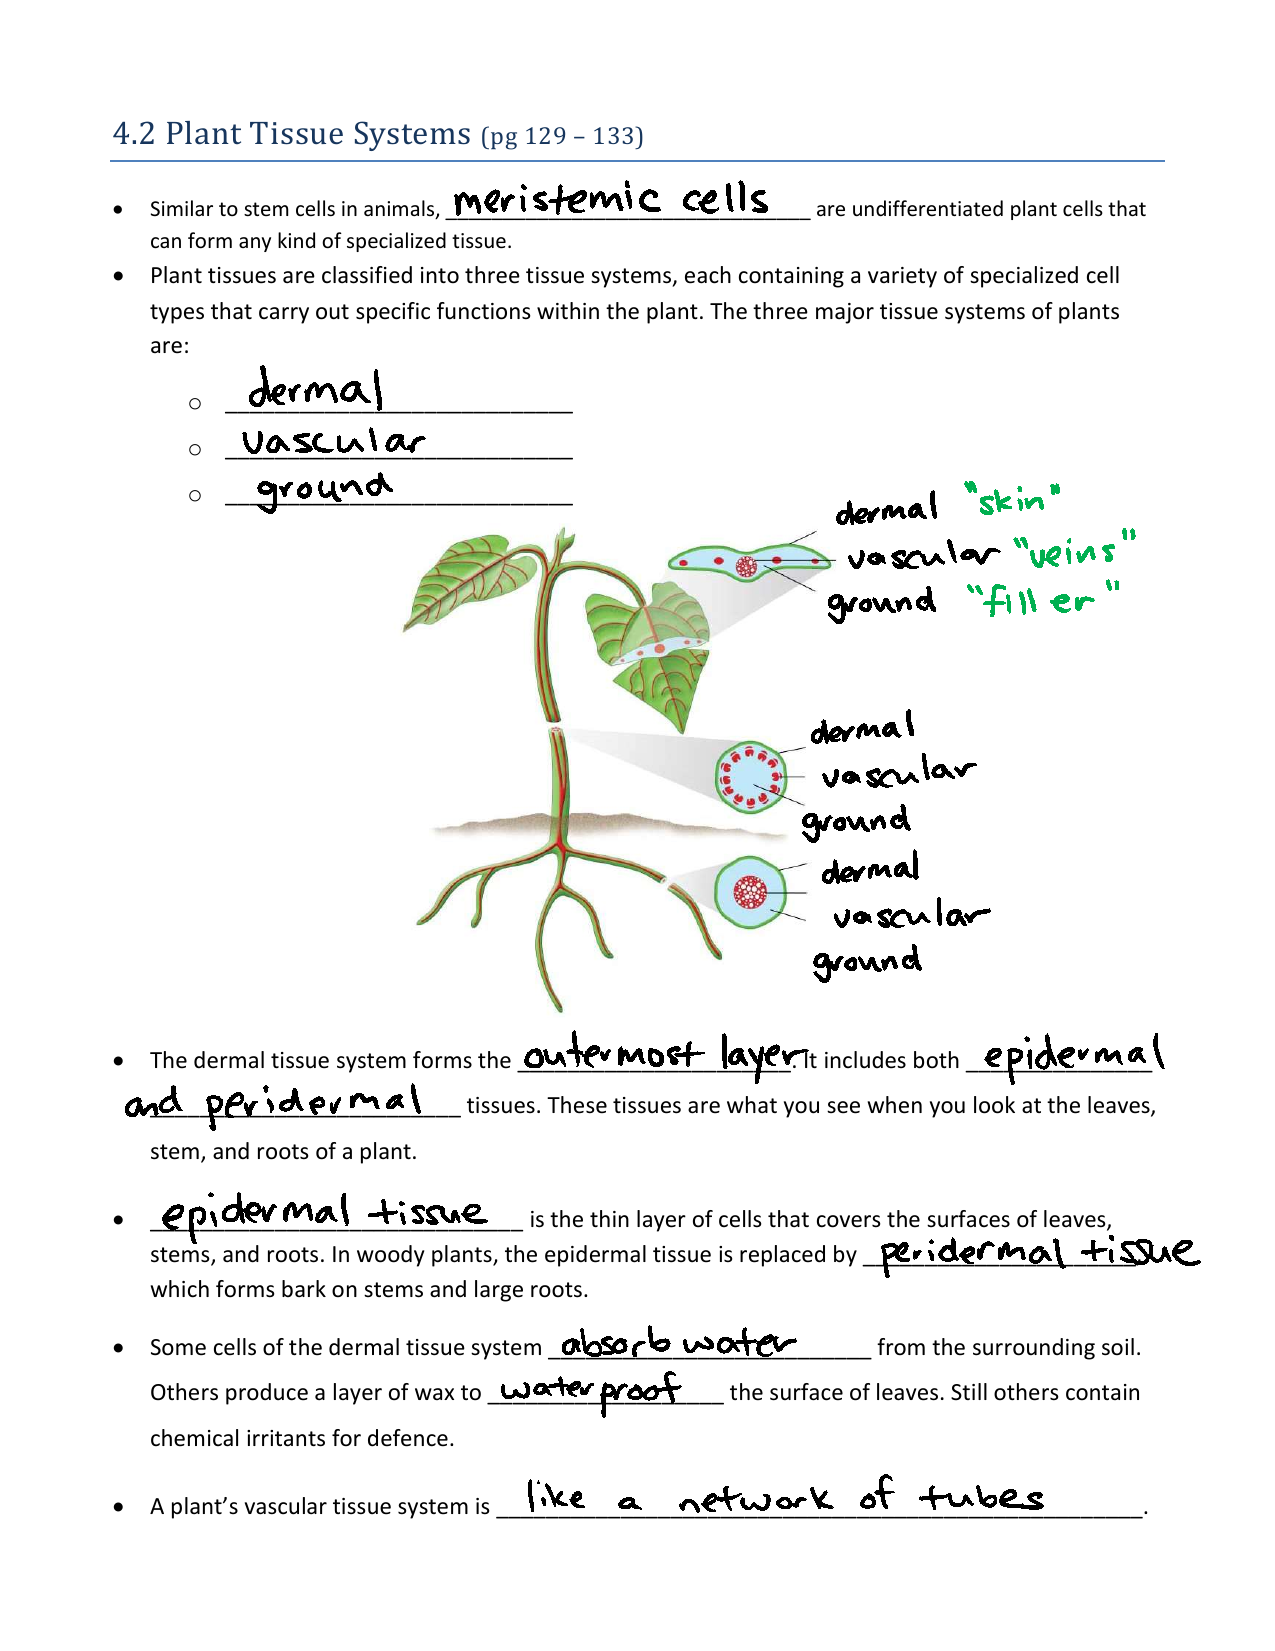 4.2 Plant Tissue Systems (pg 129 – 133)
• Similar to stem cells in animals, meristemic cells are undifferentiated plant cells that
can form any kind of specialized tissue.
• Plant tissues are classified into three tissue systems, each containing a variety of specialized cell
types that carry out specific functions within the plant. The three major tissue systems of plants
are:
○ dermal
○ vascular
○ ground
dermal "skin"
vascular "veins"
ground "filler"
dermal
vascular
ground
dermal
vascular
ground
• The dermal tissue system forms the outermost layer. It includes both epidermal
and peridermal tissues. These tissues are what you see when you look at the leaves,
stem, and roots of a plant.
• epidermal tissue is the thin layer of cells that covers the surfaces of leaves,
stems, and roots. In woody plants, the epidermal tissue is replaced by peridermal tissue
which forms bark on stems and large roots.
• Some cells of the dermal tissue system absorb water from the surrounding soil.
Others produce a layer of wax to waterproof the surface of leaves. Still others contain
chemical irritants for defence.
• A plant's vascular tissue system is like a network of tubes.